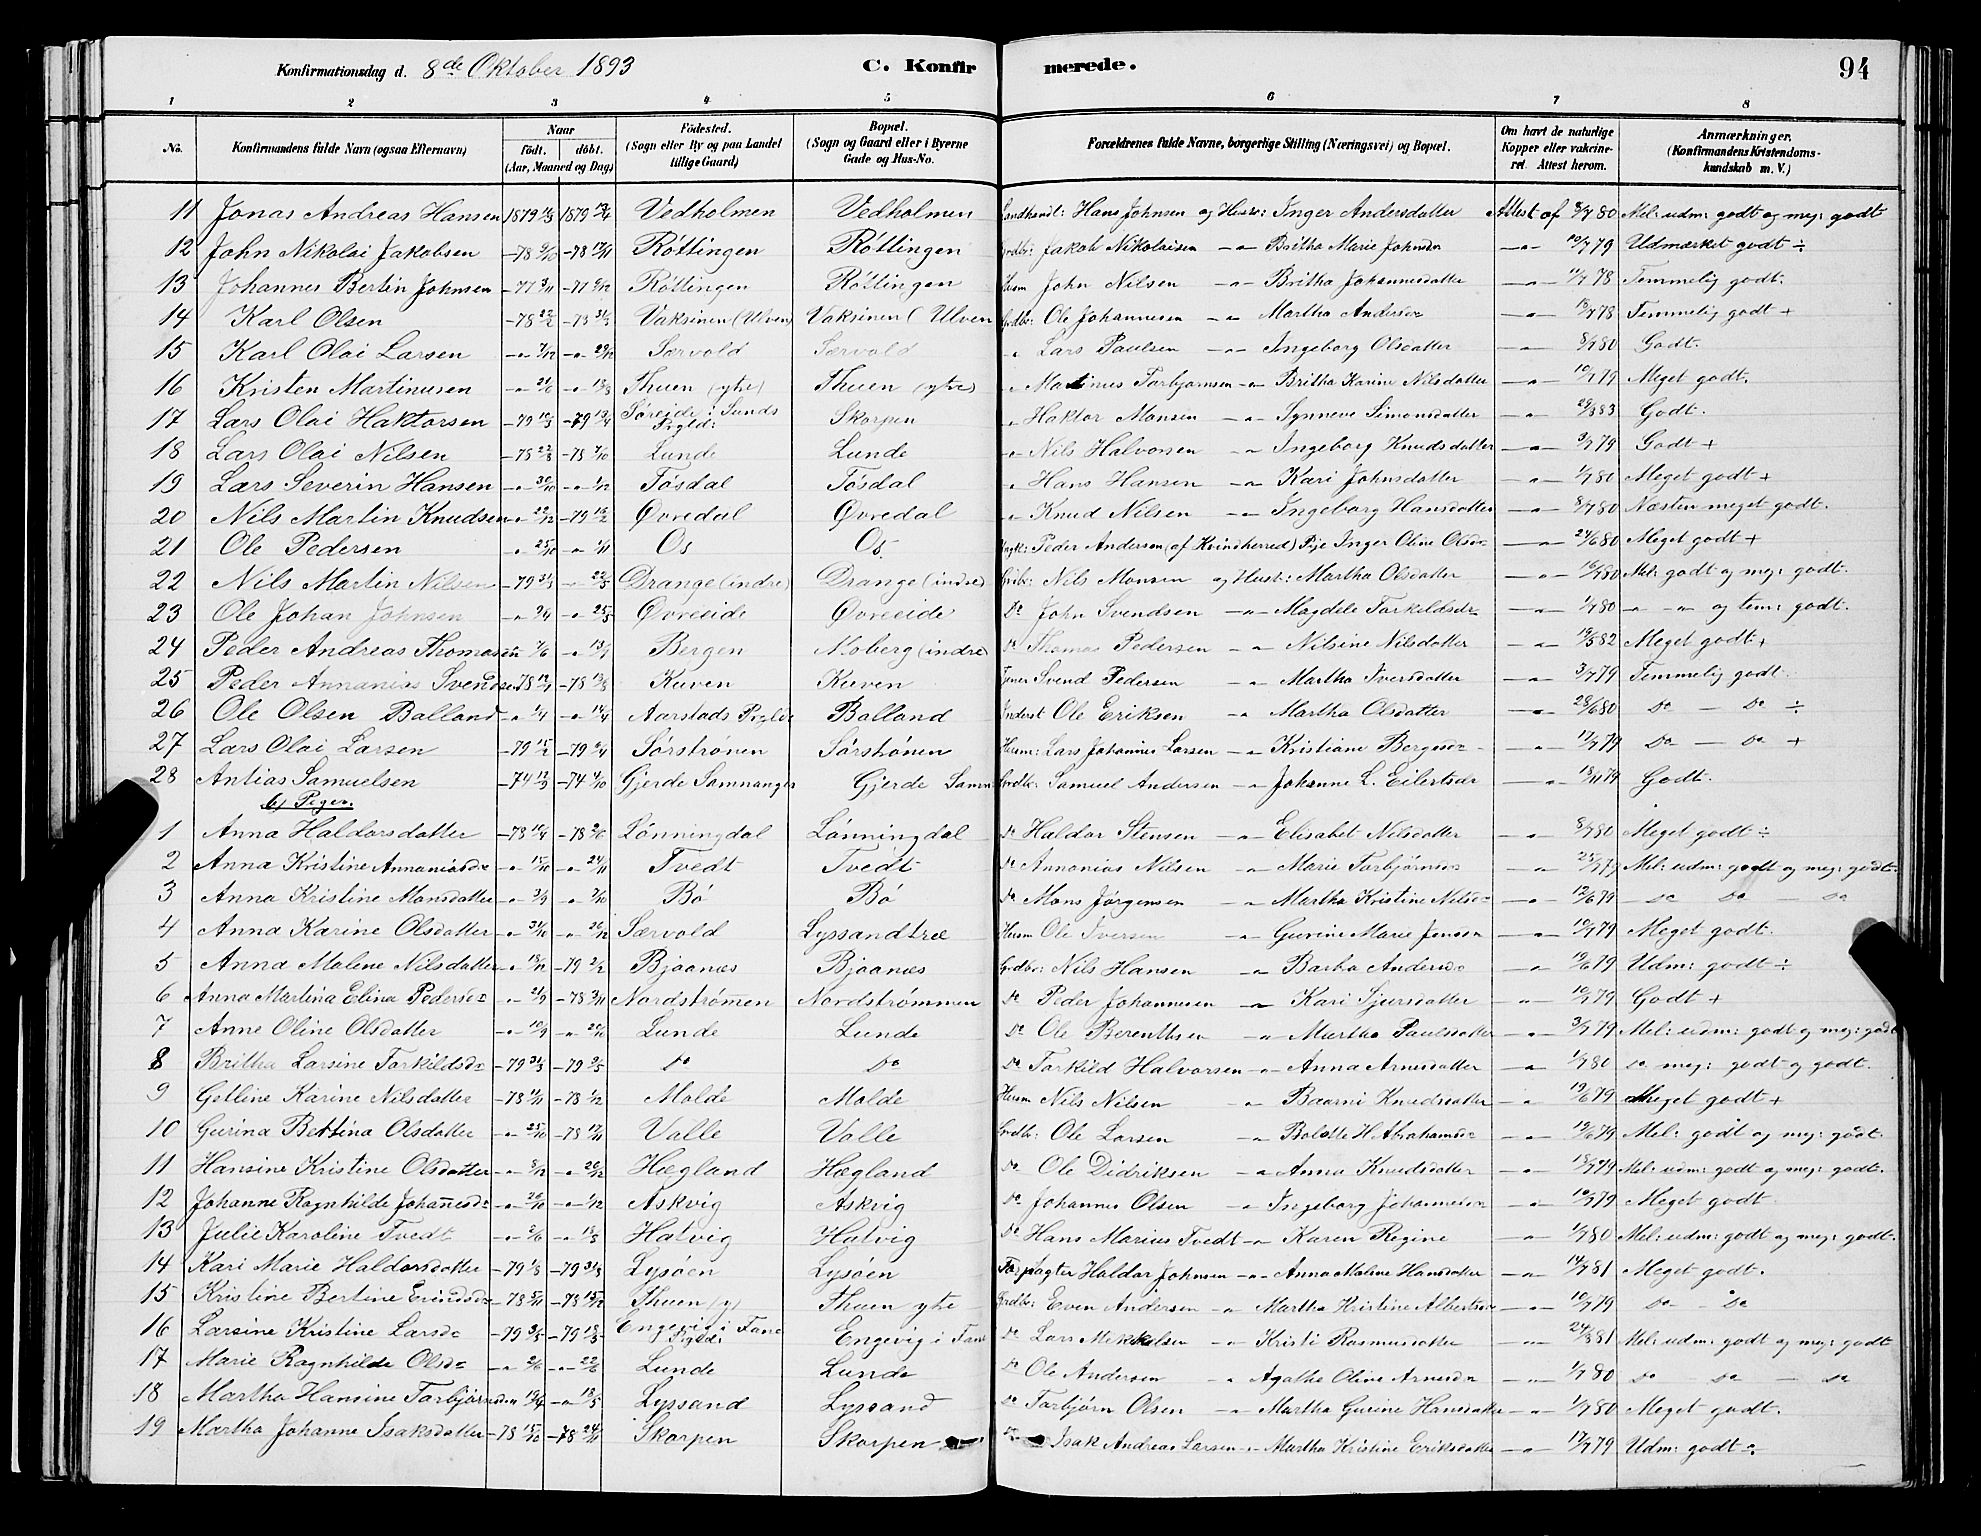 Konfirmationsdag d. 8de Oktober 1893 C. Konfirmerede. 94
1 2 3 4 5 6 7 8
No. Konfirmandens fulde Navn (ogsaa Efternavn) Naar født. døbt. (Aar, Maaned og Dag) Fødested. (Sogn eller By og paa Landet tillige Gaard) Bopæl. (Sogn og Gaard eller i Byerne Gade og Hus-No. Forældrenes fulde Navne, borgerlige Stilling (Næringsvei) og Bopæl. Om havt de naturlige Kopper eller vakcineret. Attest herom. Anmærkninger. (Konfirmandens Kristendomskundskab m. V.)
11 Jonas Andreas Hansen 1879 1879 Vedholmen Vedholmen Landhandl: Hans Johnsen og Hustr: Inger Andersdatter Attest af 80 Mel: udm: godt og meg: godt
12 John Nikolai Jakobsen -78 -78 Røttingen Røttingen Grdbr: Jakob Nikolaisen -"- Britha Marie Johnsdr -"- 79 Udmærket godt ÷
13 Johannes Bertin Johnsen -77 -77 Røttingen Røttingen Husm John Nilsen -"- Britha Johannesdatter -"- 78 Temmelig godt.
14 Karl Olsen -78 -78 Vaksinen (Ulven) Vaksinen (Ulven Grdbr: Ole Johannesen -"- Martha Andersdr -"- 78 Temmelig godt +
15 Karl Olai Larsen -"- -"- Særvold Særvold -"- Lars Paulsen -"- Ingeborg Olsdatter -"- 80 Godt.
16 Kristen Martinusen -"- -"- Thuen (ytre) Thuen (ytre) -"- Martinus Torbjørnsen -"- Britha Karine Nilsdatter -"- 79 Meget godt.
17 Lars Olai Haktorsen -79 -79 Søreide i Sunds Prgld: Skorpen -"- Haktor Monsen -"- Synneve Simonsdatter -"- 83 Godt.
18 Lars Olai Nilsen -78 -78 Lunde Lunde -"- Nils Halvorsen -"- Ingeborg Knudsdatter -"- 79 Godt +
19 Lars Severin Hansen -"- -"- Tøsdal Tøsdal -"- Hans Hansen -"- Kari Johnsdatter -"- 80 Meget godt +
20 Nils Martin Knudsen -"- -79 Øvredal Øvredal -"- Knud Nilsen -"- Ingeborg Hansdatter -"- 80 Næsten meget godt.
21 Ole Pedersen -"- -"- Os Os Peder Andersen (af Kvindherred) Pige Inger Oline Olsdr -"- 80 Meget godt +
22 Nils Martin Nilsen -79 -"- Drange (indre) Drange (indre) Grdbr: Nils Monsen og Hust: Martha Olsdatter -"- 80 Mel: godt og meg: godt.
23 Ole Johan Johnsen -"- -"- Øvreeide Øvreeide Do John Svendsen -"- Magdele Torkildsdr -"- 80 -"- -"- og tem: godt.
24 Peder Andreas Thomasen -"- -"- Bergen Moberg (indre) Do Thomas Pedersen -"- Nilsine Nilsdatter -"- 82 Meget godt +
25 Peder Annanias Svendsen -78 -78 Kuven Kuven Svend Pedersen -"- Martha Iversdatter -"- 79 Temmelig godt.
26 Ole Olsen Balland -"- -"- Aarstads Prgld Balland Inderst Ole Eriksen -"- Martha Olsdatter -"- 80 Do - Do ÷
27 Lars Olai Larsen -79 -79 Sørstrønen Sørstrønen Husm: Lars Johannes Larsen -"- Kristiane Bergesdr -"- 79 Do - Do +
28 Antias Samuelsen -74 -74 Gjerde Samnanger Gjerde Samn Grdbr: Samuel Andersen -"- Johanne L. Eilertsdr -"- 79 Godt.
b) Piger.
1 Anna Haldorsdatter -78 -78 Lønningdal Lønningdal Do Haldor Stensen -"- Elisabet Nilsdatter -"- 80 Meget godt ÷
2 Anna Kristine Annaniasdr -"- -"- Tvedt Tvedt Do Annanias Nilsen -"- Marie Torbjørnsdr -"- 79 Mel: udm: godt og meg: godt.
3 Anna Kristine Monsdatter -"- -"- Bø Bø Do Mons Jørgensen -"- Martha Kristine Nilsdr -"- 79 - Do Do - Do
4 Anna Karine Olsdatter -"- -"- Særvold Lyssandtræ Husm Ole Iversen -"- Gurine Marie Jensdr -"- 79 Meget godt.
5 Anna Malene Nilsdatter -"- -79 Bjaanæs Bjaanæs Grdbr: Nils Hansen -"- Barba Andersdr -"- 79 Udm: godt ÷
6 Anna Martina Elina Pedersdr -"- -78 Nordstrømen Nordstrømmen Do Peder Johannesen -"- Kari Sjursdatter -"- 79 Godt +
7 Anne Oline Olsdatter -"- -"- Lunde Lunde Do Ole Berenthsen -"- Martha Paulsdatter -"- 79 Mel: udm: godt og meg: godt
8 Britha Larsine Torkildsdr -79 -79 Do Do Do Torkild Halvorsen -"- Anna Arnesdatter -"- 80 Do meg: godt og godt.
9 Getline Karine Nilsdatter -78 -78 Molde Molde Husm Nils Nilsen -"- Baarni Knudsdatter -"- 79 Meget godt +
10 Gurina Bettina Olsdatter -"- -78 Valle Valle Grdbr: Ole Larsen -"- Bolette H. Abrahamsdr -"- 79 Mel: godt og meg: godt.
11 Hansine Kristine Olsdatter -"- -"- Hægland Hægland Do Ole Didriksen -"- Anna Knudsdatter -"- 79 Mel: udm: godt og meg: godt.
12 Johanne Ragnhilde Johanesdr -"- -"- Askvig Askvig Do Johannes Olsen -"- Ingeborg Johannesdr -"- 79 Meget godt
13 Julie Karoline Tvedt -"- -"- Hatvig Hatvig Do Hans Marius Tvedt -"- Karen Regine -"- 80 Mel: udm: godt og meg: godt.
14 Kari Marie Haldorsdatter -79 -79 Lysøen Lysøen Forpagter Haldor Johnsen -"- Anna Malene Hansdatter -"- 81 Meget godt.
15 Kristine Bertine Evindsdr -78 -78 Thuen (y) Thuen ytre Grdbr: Even Andersen -"- Martha Kristine Albertsdr -"- 79 Do - Do
16 Larsine Kristine Larsdr -79 -79 Engevig i Fane Prgld: Engevig i Fane Do Lars Mikkelsen -"- Kristi Rasmusdatter -"- 81 Mel: udm: godt og meg: godt
17 Marie Ragnhilde Olsdr -"- -"- Lunde Lunde Do Ole Andersen -"- Agathe Oline Arnesdr -"- 80 Do Do - Do
18 Martha Hansine Torbjørnsdr -"- Lyssand Lyssand Do Torbjørn Olsen -"- Martha Gurine Hansdatter -"- 80 Meget godt.
19 Martha Johanne Isaksdatter -78 -78 Skorpen Skorpen Do Isak Andreas Larsen -"- Martha Kristine Eriksdatter -"- 79 Udm: godt ÷